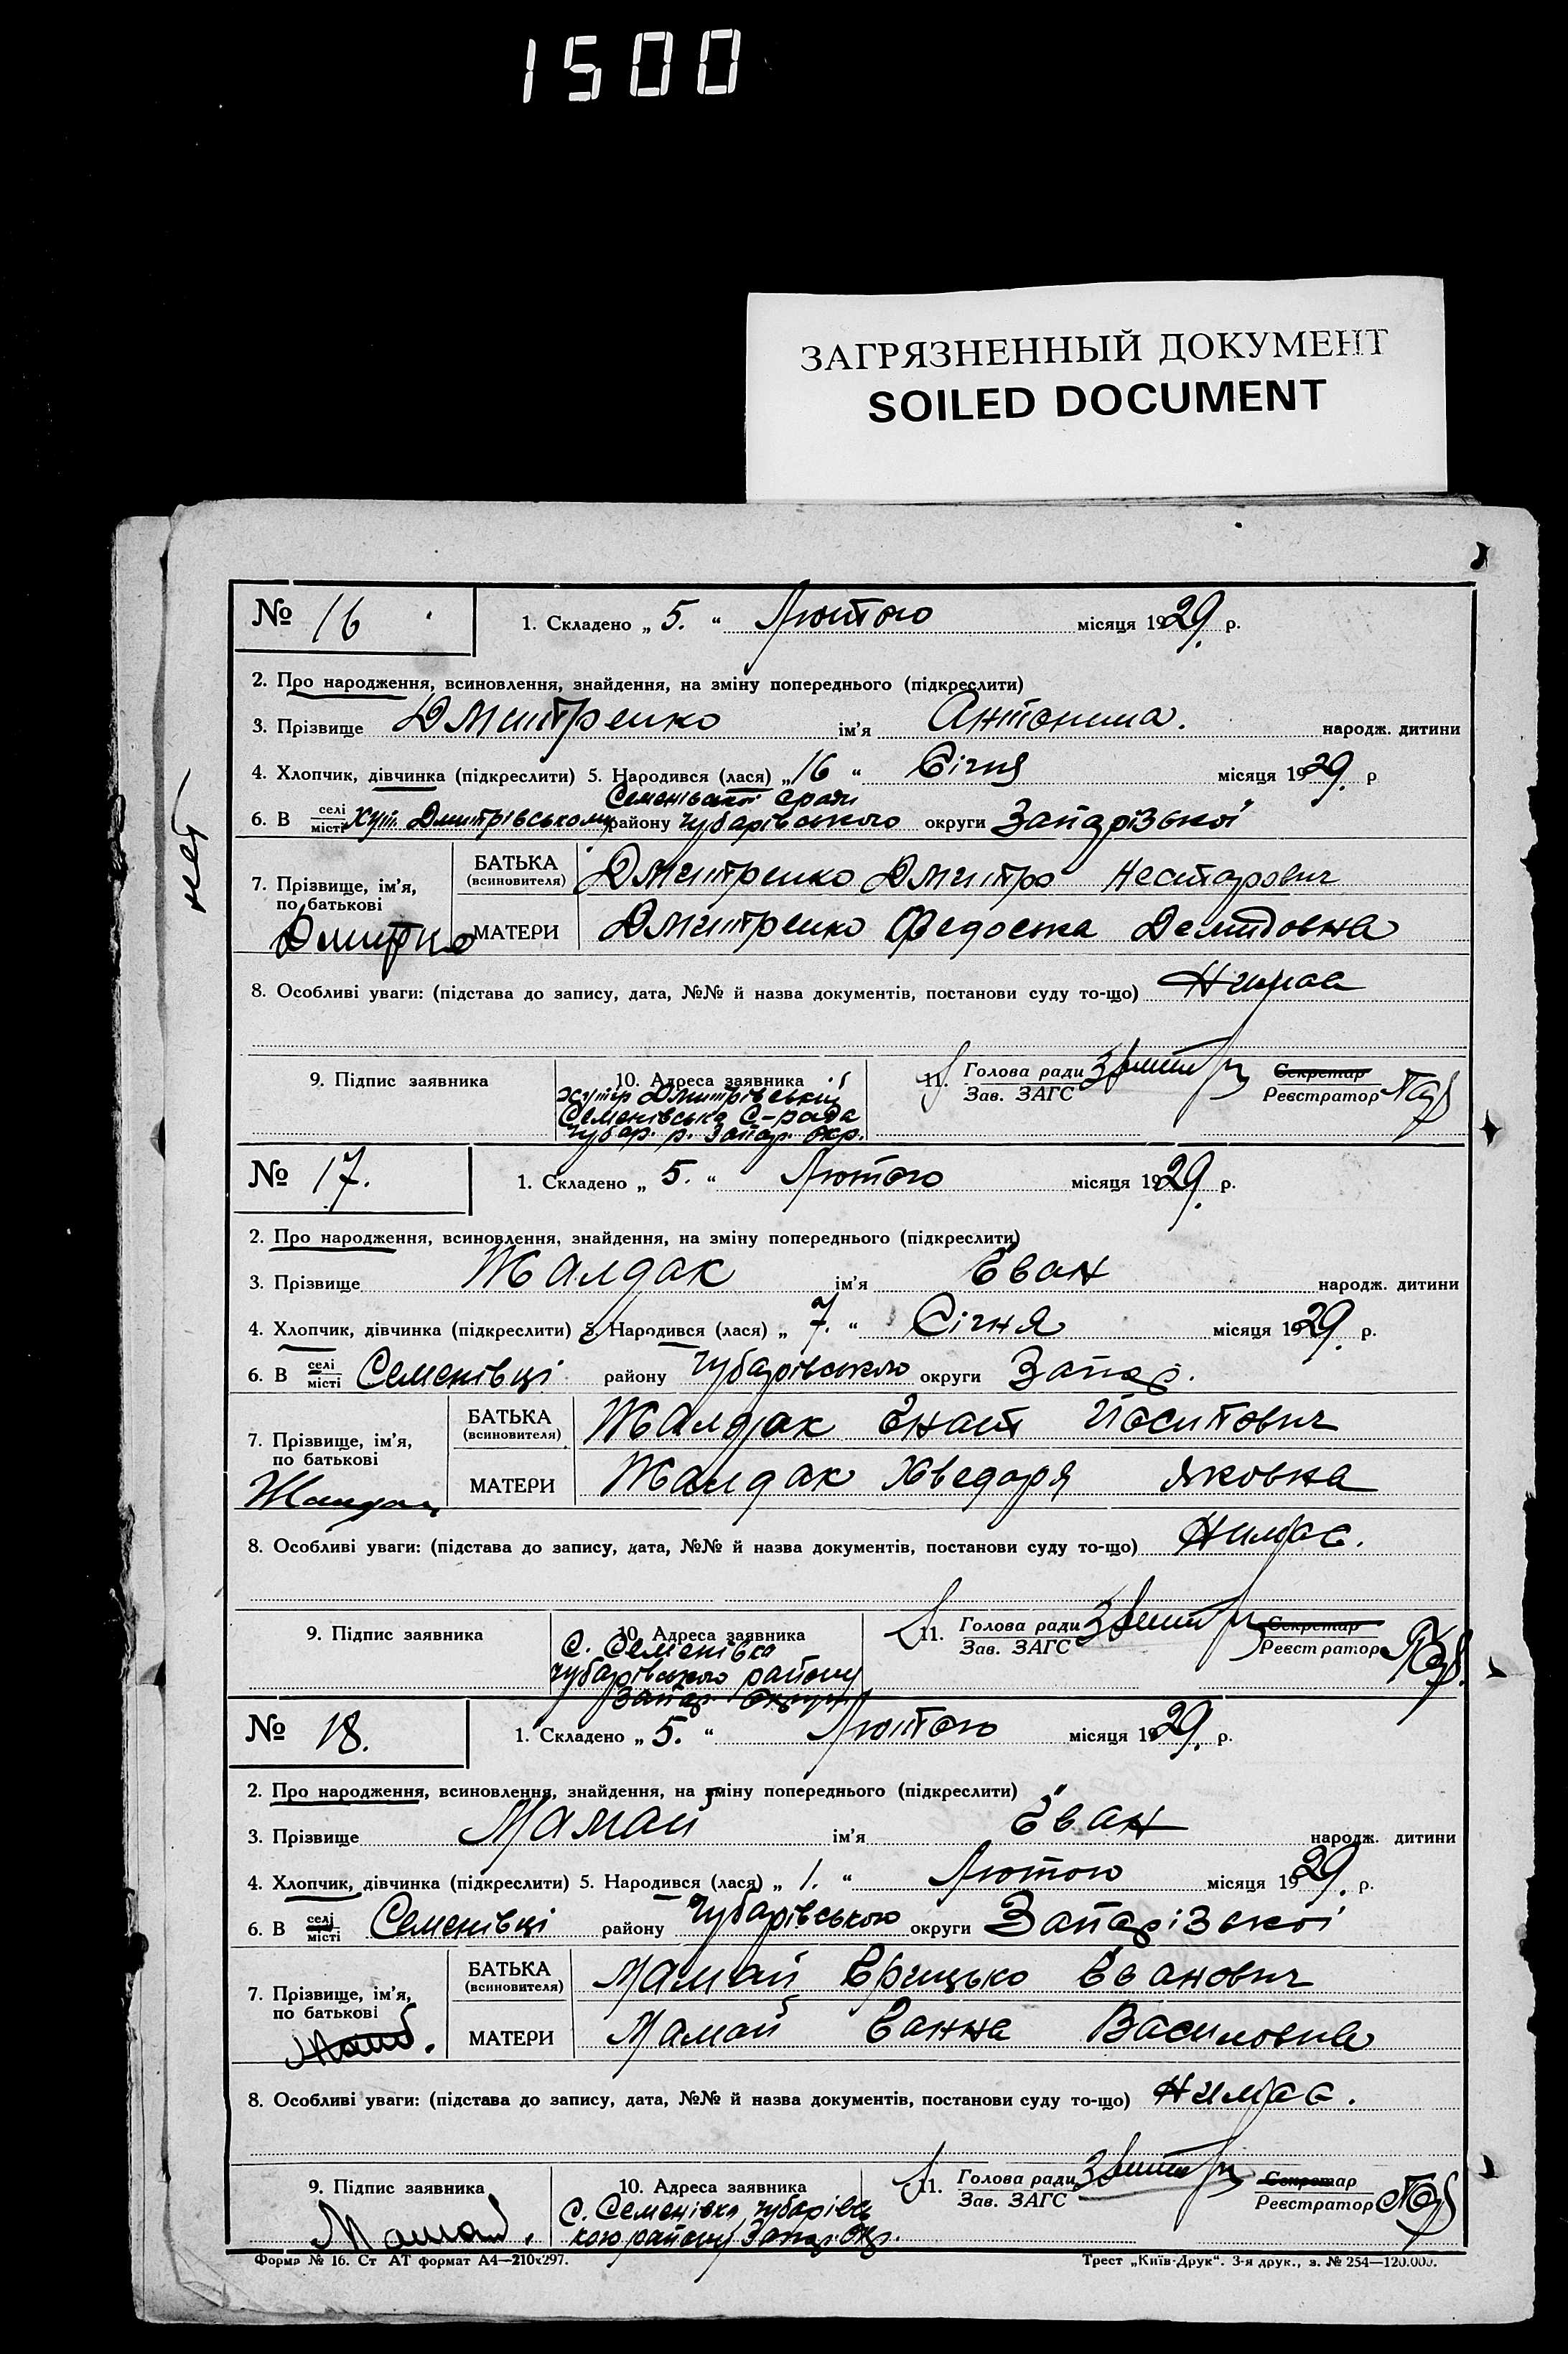 1500
ЗАГРЯЗНЕННЫЙ ДОКУМЕНТ
SOILED DOCUMENT
№ 16
1. Складено „ 5. “ Лютого місяця 1929. р.
2. Про народження, всиновлення, знайдення, на зміну попереднього (підкреслити)
3. Прізвище Дмитренко ім'я Антонина. народж. дитини
4. Хлопчик, дівчинка (підкреслити) 5. Народився (лася) „ 16 “ Січня місяця 1929. р
Семенівської сради
6. В селі місті хут. Дмитрівському району Чубарівського округи Запорізької
7. Прізвище, ім'я, по батькові
БАТЬКА (всиновителя) Дмитренко Дмитро Несторович
МАТЕРИ Дмитренко Федоська Демидовна
8. Особливі уваги: (підстава до запису, дата, №№ й назва документів, постанови суду то-що) Нимає
9. Підпис заявника
10. Адреса заявника
хутір Дмитрівський
Семенівська С-рада
Чубар. р. Запор. окр.
11. Голова ради Секретар
Зав. ЗАГС Реєстратор
№ 17.
1. Складено „ 5. “ Лютого місяця 1929. р.
2. Про народження, всиновлення, знайдення, на зміну попереднього (підкреслити)
3. Прізвище Жалдак ім'я Іван народж. дитини
4. Хлопчик, дівчинка (підкреслити) 5. Народився (лася) „ 7. “ Січня місяця 1929. р.
6. В селі місті Семенівці району Чубарівського округи Запор.
7. Прізвище, ім'я, по батькові
БАТЬКА (всиновителя) Жалдак Гнат Йосипович
МАТЕРИ Жалдак Хведоря Яковна
8. Особливі уваги: (підстава до запису, дата, №№ й назва документів, постанови суду то-що) Нимає.
9. Підпис заявника
10. Адреса заявника
С. Семенівка
Чубарівського району
Запор. Округи
11. Голова ради Секретар
Зав. ЗАГС Реєстратор
№ 18.
1. Складено „ 5. “ Лютого місяця 1929. р.
2. Про народження, всиновлення, знайдення, на зміну попереднього (підкреслити)
3. Прізвище Мамай ім'я Іван народж. дитини
4. Хлопчик, дівчинка (підкреслити) 5. Народився (лася) „ 1. “ Лютого місяця 1929. р.
6. В селі місті Семенівці району Чубарівського округи Запорізької
7. Прізвище, ім'я, по батькові
БАТЬКА (всиновителя) Мамай Грицько Іванович
МАТЕРИ Мамай Ганна Василовна
8. Особливі уваги: (підстава до запису, дата, №№ й назва документів, постанови суду то-що) Нимає.
9. Підпис заявника
10. Адреса заявника
С. Семенівка, Чубарівсь
кого району Запор. Окр.
11. Голова ради Секретар
Зав. ЗАГС Реєстратор
Форма № 16. Ст АТ формат А4—210х297.
Трест „Київ-Друк“. 3-я друк., з. № 254—120.000.